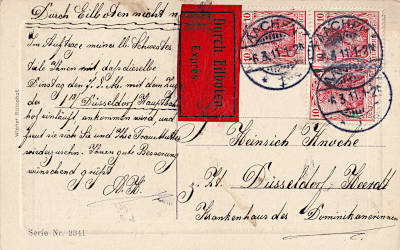 Durch Eilboten nicht n
Im Auftrage meiner lb. Schwester
teile Ihnen mit daß dieselbe
Dienstag den 7. d. M. mit dem Zug
der 1 Düsseldorf Hauptbahn
hof einläuft ankommen wird, und
freut sie sich Sie und Ihre Frau Mutter
wiederzusehen. Ihnen gute Besserung
wünschend grüßt
A. H.
Durch Eilboten.
Exprès.
AACHEN
6.3.11.1-2
10
10
10
Heinrich Knoche
z. Zt. Düsseldorf-Heerdt
Krankenhaus der Dominikanerinnen
Serie Nr. 2341